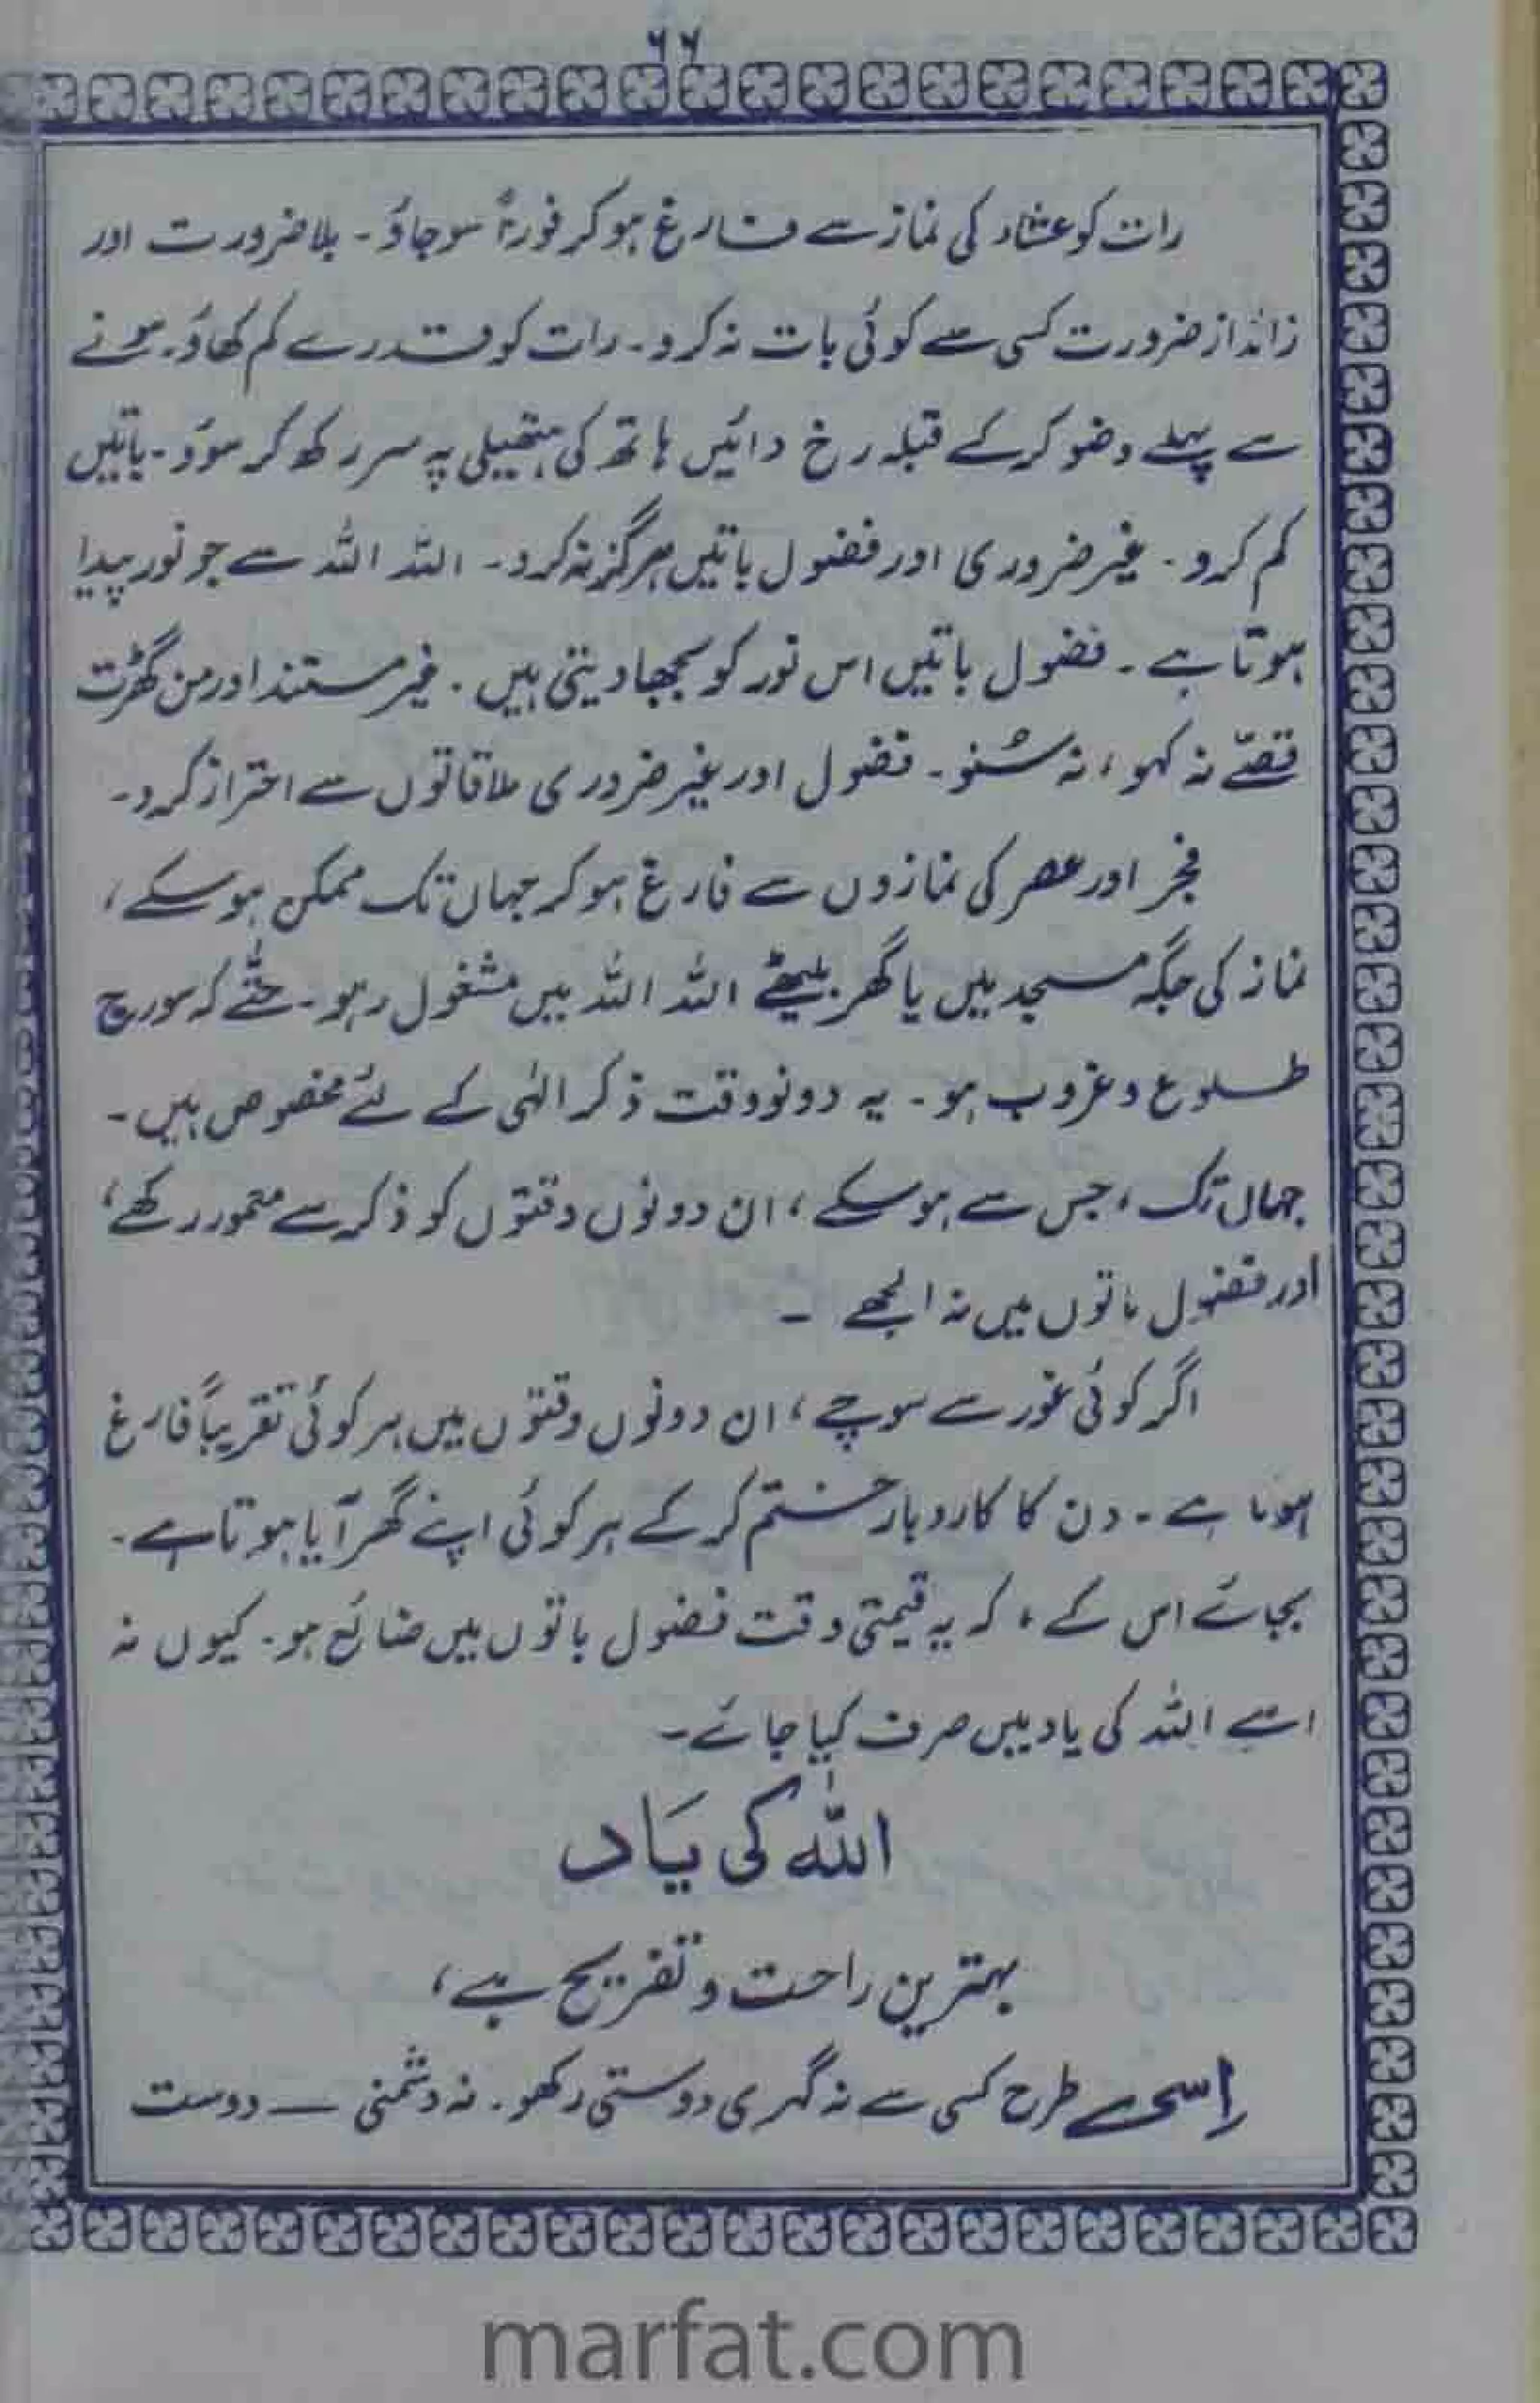 ۶۶
رات کو عشاء کی نماز سے فارغ ہو کر فوراً سو جاؤ۔ بلا ضرورت اور
زائد از ضرورت کسی سے کوئی بات نہ کرو۔ رات کو قدرے کم کھاؤ۔ سونے
سے پہلے وضو کر کے قبلہ رخ دائیں ہاتھ کی ہتھیلی پہ سر رکھ کر سوؤ۔ باتیں
کم کرو۔ غیر ضروری اور فضول باتیں ہرگز نہ کرو۔ اللہ اللہ سے جو نور پیدا
ہوتا ہے۔ فضول باتیں اس نور کو بجھا دیتی ہیں۔ غیر مستند اور من گھڑت
قصّے نہ کہو، نہ سُنو۔ فضول اور غیر ضروری ملاقاتوں سے احتراز کرو۔
فجر اور عصر کی نمازوں سے فارغ ہو کر جہاں تک ممکن ہو سکے،
نماز کی جگہ مسجد میں یا گھر بیٹھے اللہ اللہ میں مشغول رہو۔ حتّٰے کہ سورج
طلوع و غروب ہو۔ یہ دونو وقت ذکر الٰہی کے لئے مخصوص ہیں۔
جہاں تک، جس سے ہو سکے، ان دونوں وقتوں کو ذکر سے معمور رکھے،
اور فضول باتوں میں نہ الجھے ۔
اگر کوئی غور سے سوچے، ان دونوں وقتوں میں ہر کوئی تقریباً فارغ
ہوتا ہے۔ دن کا کاروبار ختم کر کے ہر کوئی اپنے گھر آیا ہوتا ہے۔
بجائے اس کے، کہ یہ قیمتی وقت فضول باتوں میں ضائع ہو۔ کیوں نہ
اسے اللہ کی یاد میں صرف کیا جائے۔
اللہ کی یَاد
بہترین راحت و تفریح ہے،
اِسی طرح کسی سے نہ گہری دوستی رکھو۔ نہ دشمنی — دوست
marfat.com